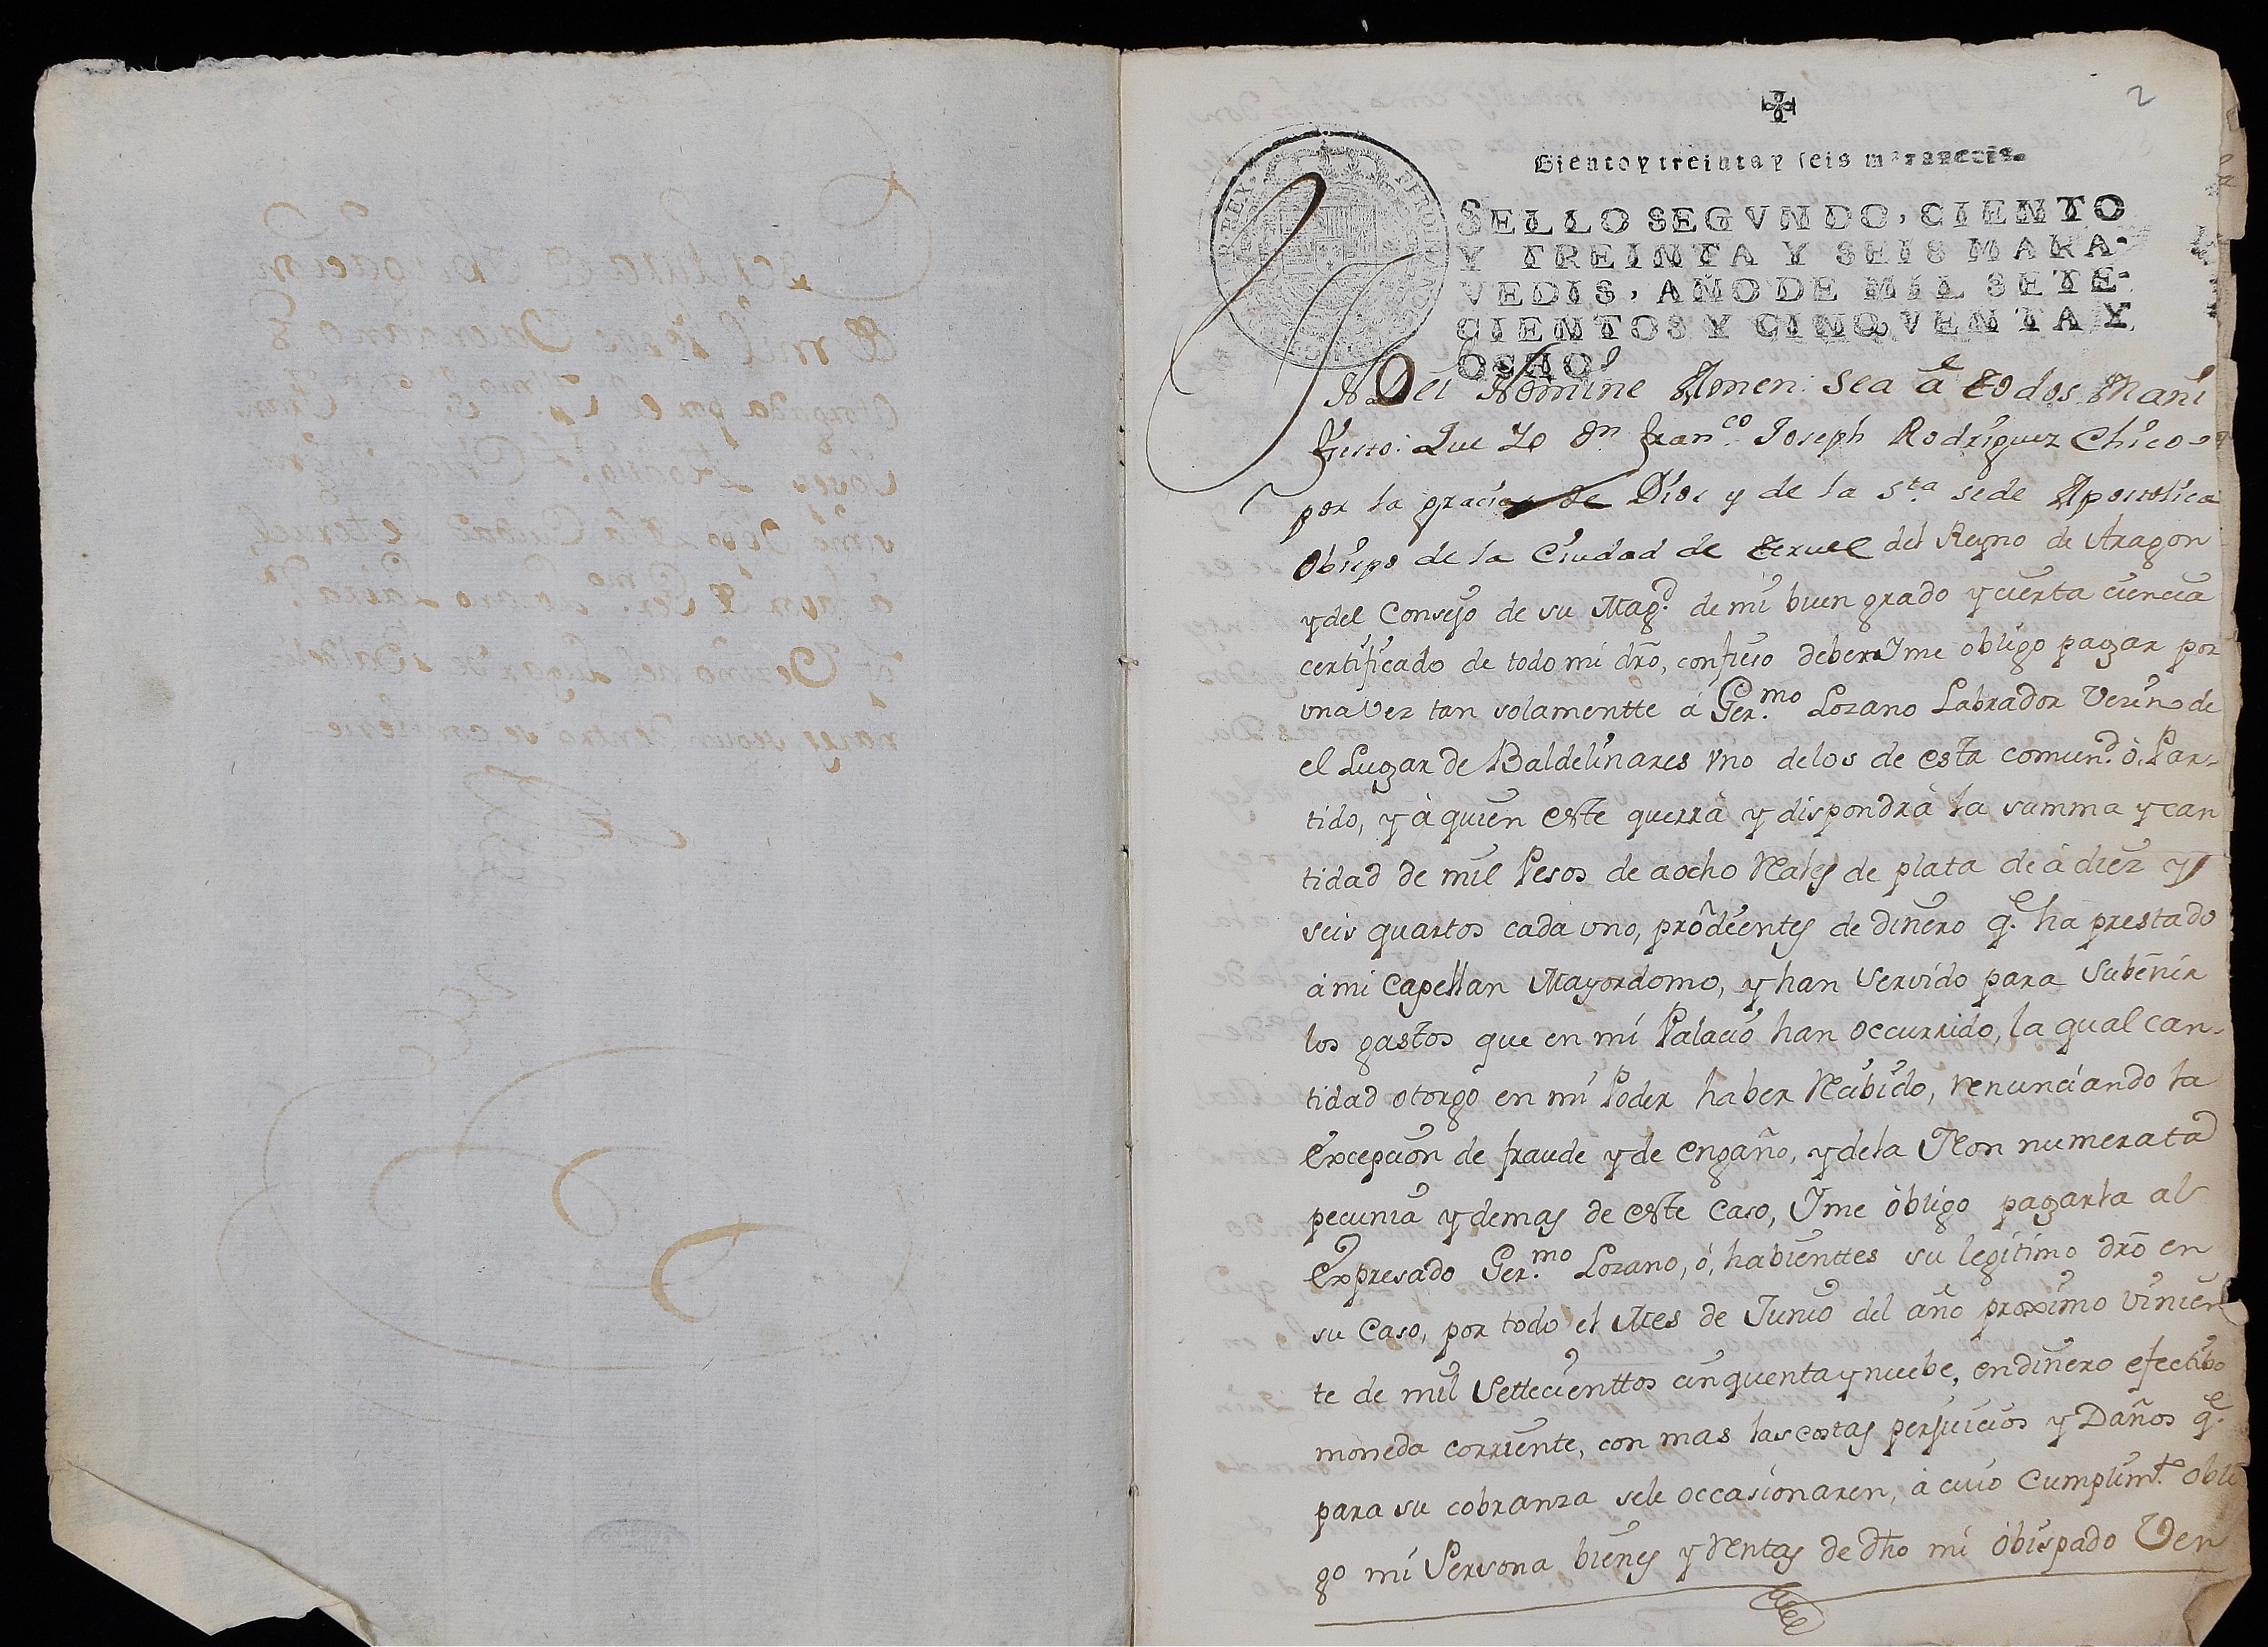 2
Ciento y treinta y seis maravedis.
SELLO SEGVNDO, CIENTO
Y TREINTA Y SEIS MARA-
VEDIS, AÑO DE MIL SETE-
CIENTOS Y CINQVENTA Y
OCHO.
In Dei Nomine Amen: Sea â todos Mani
fiesto: Que Yo Dn. Franco. Joseph Rodriguez Chico
por la gracia de Dios y de la Sta. sede Apostolica
Obispo de la Ciudad de Teruel del Reyno de Aragon
y del Consejo de su Magd. de mi buen grado y cierta ciencia
certificado de todo mi dro, confieso deber Y me obligo pagar por
una Vez tan solamentte á Germo. Lozano Labrador Vezino de
el Lugar de Baldelinares Vno delos de esta comund. ò, Par-
tido, y à quien este querrà y dispondrà la summa y can
tidad de mil Pesos de aocho Reales de plata de à diez y
seis quartos cada uno, prodeentes de dinero qe. ha prestado
á mi Capellan Mayordomo, y han servido para subenir
los gastos que en mi Palacio han occurrido, la qual can-
tidad otorgo en mi Poder haber Recibido, renunciando la
Excepcion de fraude y de engaño, y dela Non numerata
pecunia y demas de este caso, Y me obligo pagarla al
Expresado Germo. Lozano, ó, habienttes su legitimo dro en
su Caso, por todo el Mes de Junio del año proximo vinien
te de mil Settecienttos cinquenta y nuebe, en dinero efectibo
moneda corriente, con mas las costas perjuicios y Daños qe.
para su cobranza sele occasionaren, à cuio Cumplimte. obli
go mi Persona bienes y Rentas de dho mi obispado Ven